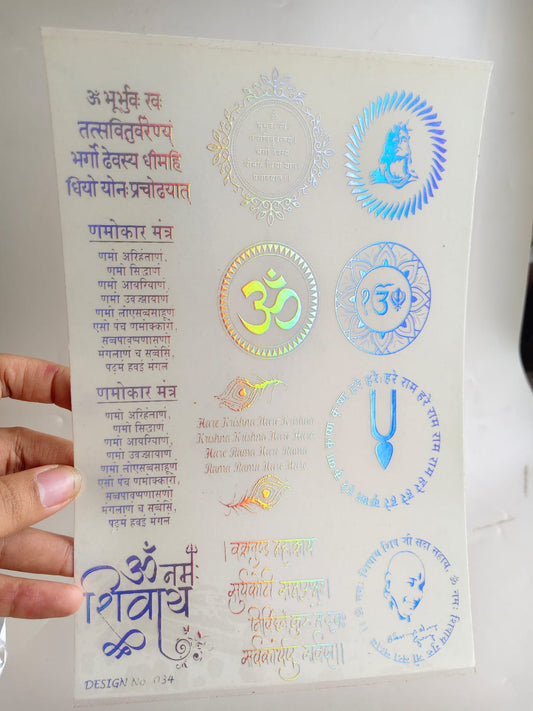 ॐ भूर्भुवः स्वः
तत्सवितुर्वरेण्यं
भर्गो देवस्य धीमहि
धियो योनः प्रचोदयात्
णमोकार मंत्र
णमो अरिहंताणं,
णमो सिद्धाणं
णमो आयरियाणं,
णमो उवज्झायाणं
णमो लोएसव्वसाहूणं
एसो पंच णमोक्कारो,
सव्वपावप्पणासणो
मंगलाणं च सव्वेसिं,
पढमं हवई मंगलं
णमोकार मंत्र
णमो अरिहंताणं,
णमो सिद्धाणं
णमो आयरियाणं,
णमो उवज्झायाणं
णमो लोएसव्वसाहूणं
एसो पंच णमोक्कारो,
सव्वपावप्पणासणो
मंगलाणं च सव्वेसिं,
पढमं हवई मंगलं
ॐ नमः
शिवाय
DESIGN No. 034
ॐ
ॐ
ੴ
Hare Krishna Hare Krishna
Krishna Krishna Hare Hare
Hare Rama Hare Rama
Rama Rama Hare Hare
हरे राम हरे राम राम राम हरे हरे हरे कृष्ण हरे कृष्ण कृष्ण कृष्ण हरे हरे
। वक्रतुण्ड महाकाय
सूर्यकोटी समप्रभः।